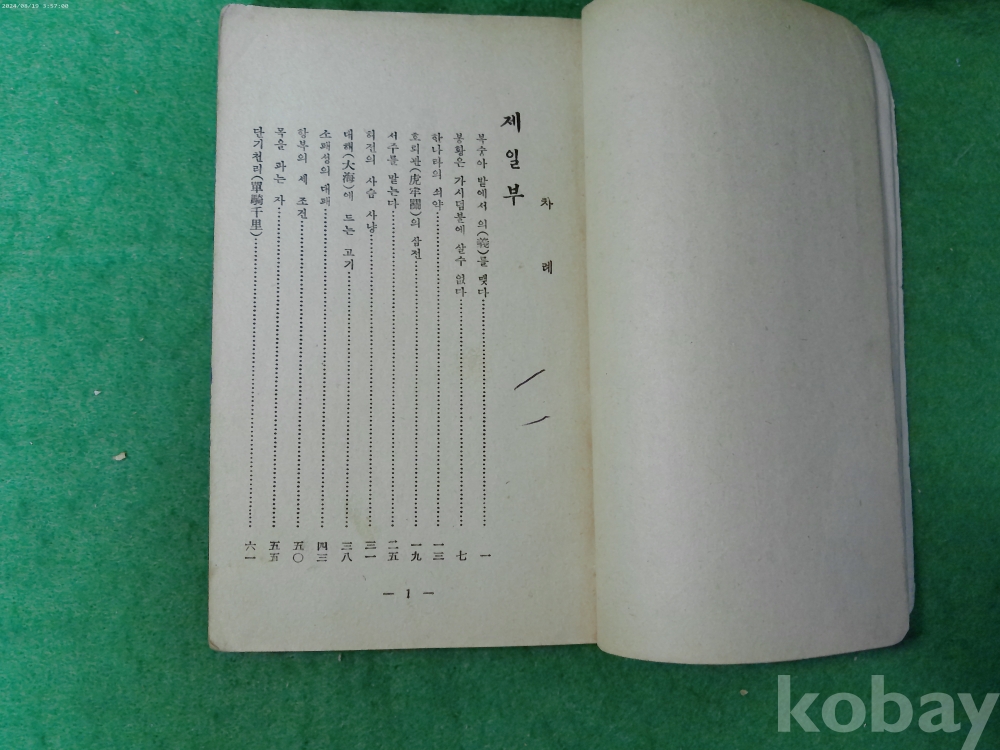 2024/06/19 3:57:00
차례
제일부
복숭아 밭에서 의(義)를 맺다 一
봉황은 가시덤불에 살수 없다 七
하나라의 쇠약 一三
호뢰관(虎牢關)의 삼전 一九
서주를 맡는다 二五
허전의 사슴 사냥 三一
대해(大海)에 드는 고기 三八
소패성의 대패 四三
항복의 세 조건 五〇
목을 파는 자 五五
단기천리(單騎千里) 六一
— 1 —
kobay